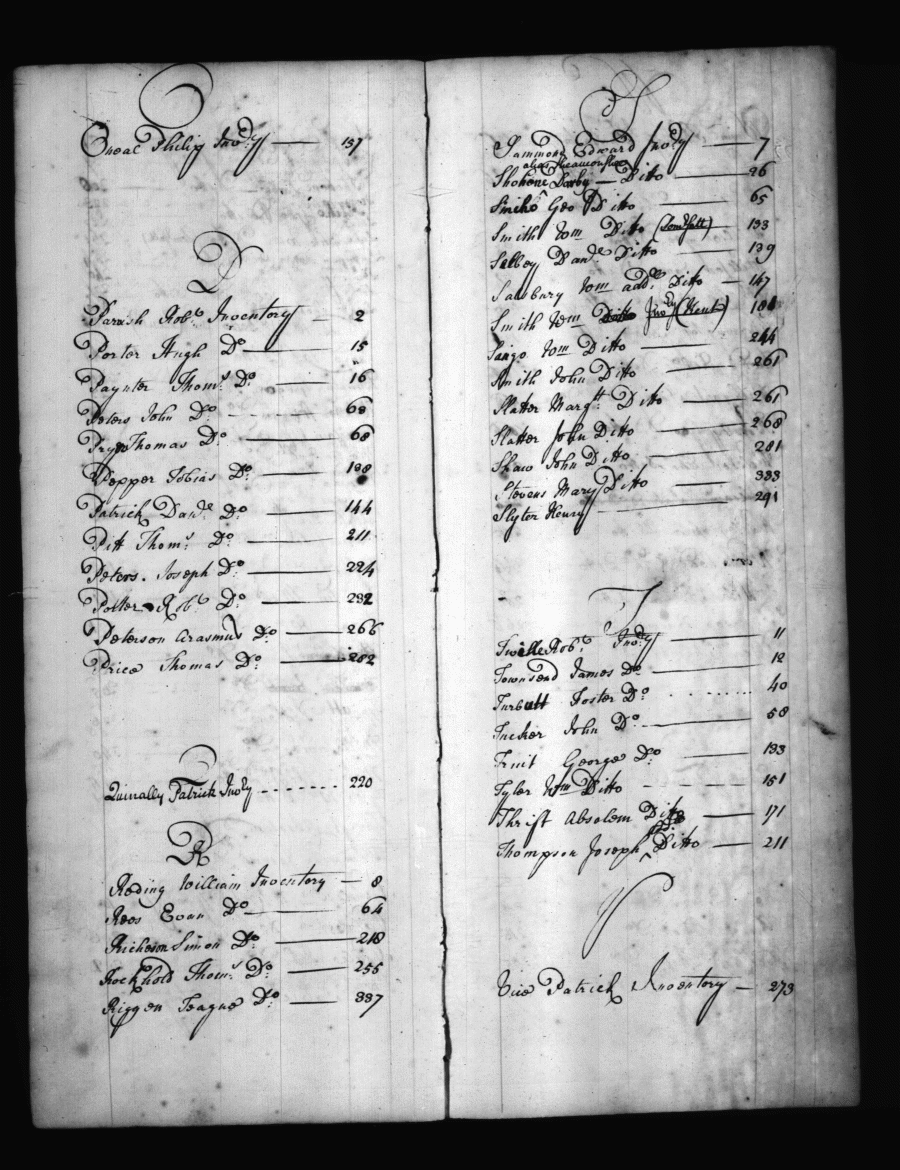 O
Oneal Philip Invry 137
P
Parish Robt. Inventory 2
Porter Hugh Do 15
Paynter Thoms. Do 16
Peters John Do 68
Prye Thomas Do 68
Pepper Tobias Do 198
Patrick Danl. Do 144
Pitt Thoms. Do 211
Peters. Joseph Do 224
Potter Robt. Do 232
Peterson Erasmus Do 266
Price Thomas Do 282
Quinally Patrick Invry 220
R
Reding William Inventory 8
Rees Evan Do 64
Richeson Simon Do 218
Rockhold Thoms. Do 255
Riggen Teague Do 337
S
Sammons Edward Invry 7
alias
Shohone Darby Ditto 26
Smiho Geo Ditto 65
Smith Wm Ditto 133
Selbey Danl. Ditto 139
Salisbury Wm addl. Ditto 147
Smith Wm Ditto Invry (Kent)
Saigo Wm Ditto 244
Smith John Ditto 261
Slatter Margtt. Ditto 261
Slatter John Ditto 268
Shaw John Ditto 281
Stevens Mary Ditto 333
Slyter Henry 291
T
Twille Robt. Invry 11
Townsend James Do 12
Turbutt Foster Do 40
Tucker John Do 58
Truit George Do 133
Tyler Wm Ditto 151
Thrift Absolem Ditto 171
Thompson Joseph Ditto 211
V
Vice Patrick Inventory 273